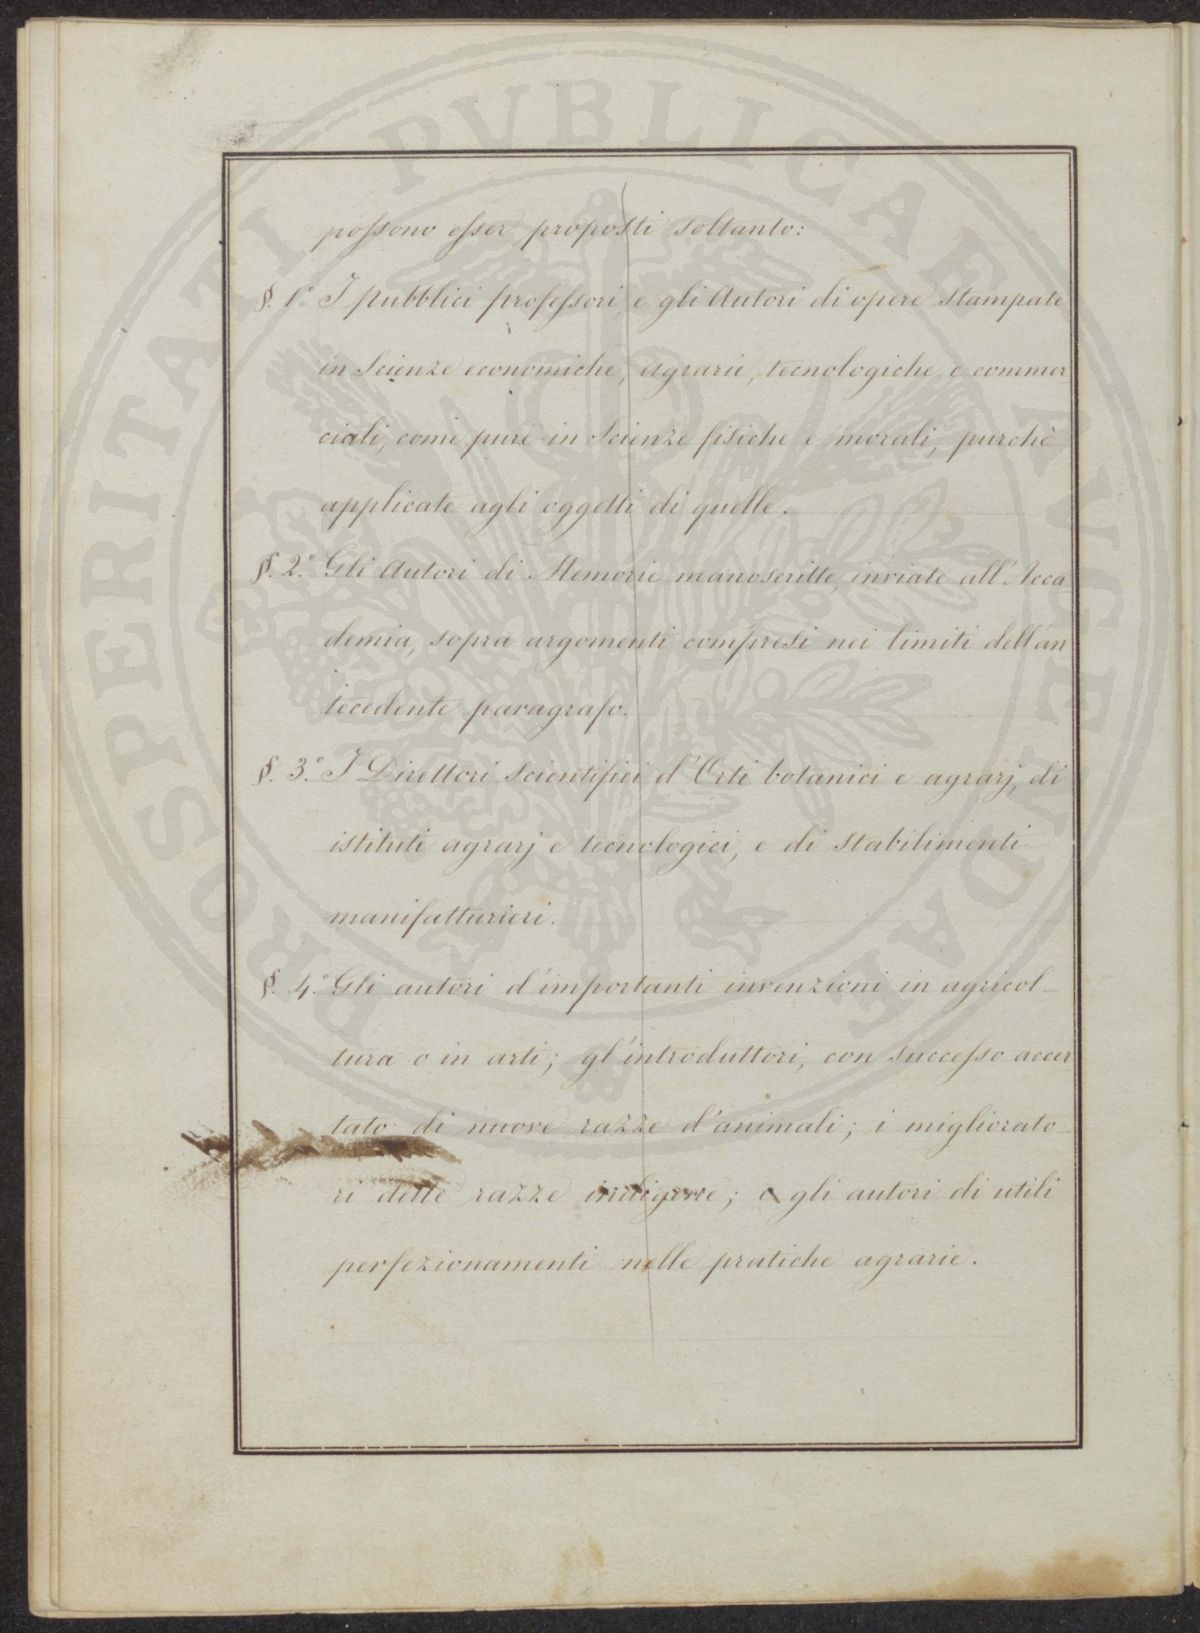 possono esser proposti soltanto:
§. 1.° I pubblici professori, e gli Autori di opere stampate
in Scienze economiche, Agrarie, tecnologiche, e commer
ciali, come pure in Scienze fisiche e morali, purchè
applicate agli oggetti di quelle.
§. 2.° Gli Autori di Memorie manoscritte, inviate all'Acca
demia, sopra argomenti compresi nei limiti dell'an
tecedente paragrafo.
§. 3.° I Direttori Scientifici d'Orti botanici e agrarj, di
istituti agrarj e tecnologici, e di stabilimenti
manifatturieri.
§. 4.° Gli autori d'importanti invenzioni in agricol-
tura o in arti; gl'introduttori, con successo accer
tato di nuove razze d'animali; i migliorato-
ri delle razze indigene; e gli autori di utili
perfezionamenti nelle pratiche agrarie.
PROSPERITATI PVBLICAE AVGENDAE